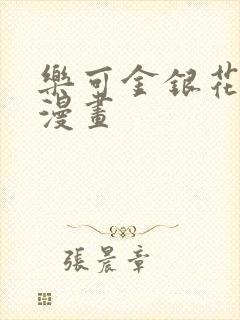 樂可金銀花
漫畫
張晨章